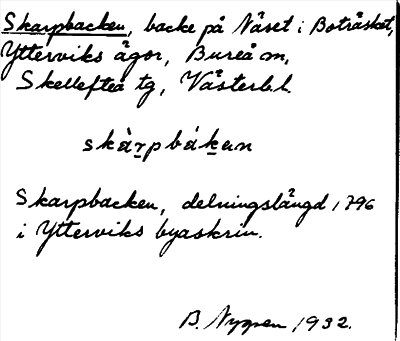 Skarpbacken, backe på Näset i Boträsket,
Ytterviks ägor, Bureå sn,
Skellefteå tg, Västerb.l.
skàr̲pbák̲an
Skarpbacken, delningslängd 1796
i Ytterviks byaskrin.
B. Nygren 1932.